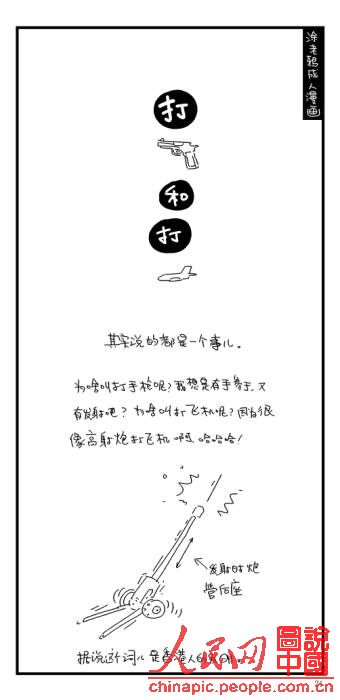 涂老鸦成人漫画
打
和
打
其实说的都是一个事儿。
为啥叫打手枪呢？我想是有手参于，又
有发射吧？为啥叫打飞机呢？因为很
像高射炮打飞机啊，哈哈哈！
发射时炮
管后座
据说这个词儿是香港人
人民网
圖說
中國
chinapic.people.com.cn